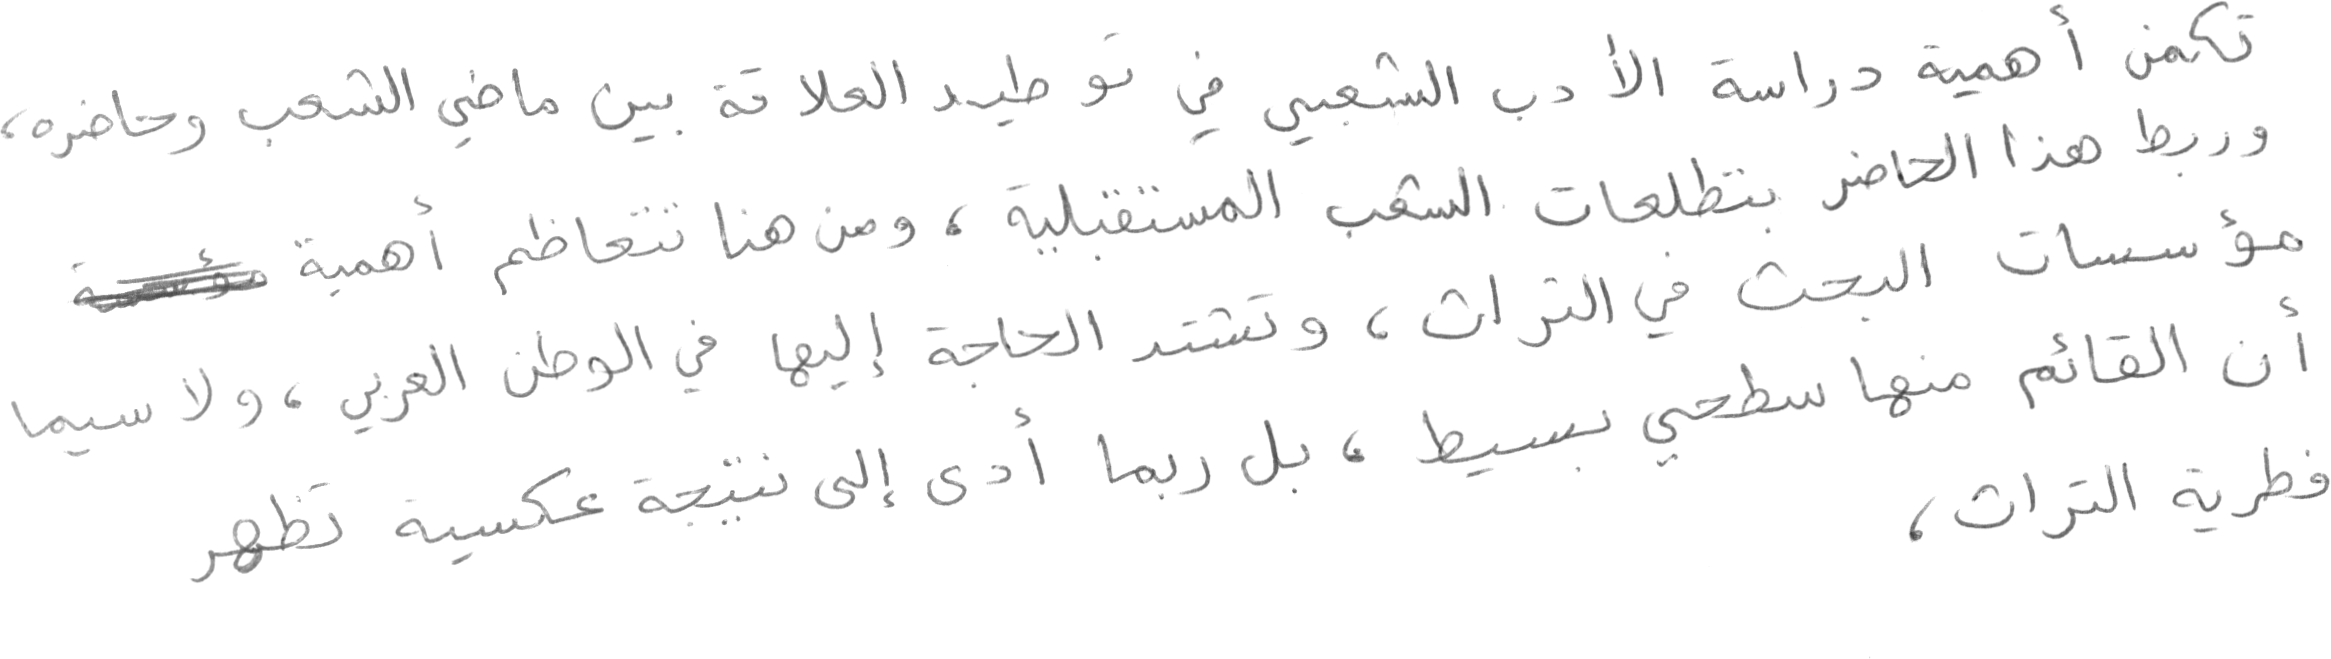 تكمن أهمية دراسة الأدب الشعبي في توطيد العلاقة بين ماضي الشعب وحاضره،
وربط هذا الحاضر بتطلعات الشعب المستقبلية، ومن هنا تتعاظم أهمية
مؤسسات البحث في التراث، وتشتد الحاجة إليها في الوطن العربي، ولا سيما
أن القائم منها سطحي بسيط، بل ربما أدى إلى نتيجة عكسية تظهر
فطرية التراث،